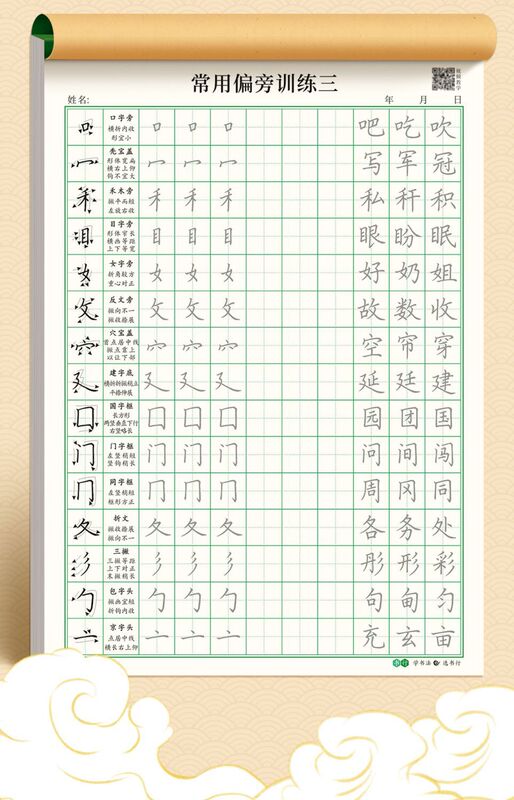 常用偏旁训练三
视频教学
姓名: 年 月 日
口字旁
横折内收
形宜小
口 口 口 吧 吃 吹
秃宝盖
形体宽扁
横右上仰
钩不宜大
冖 冖 冖 写 军 冠
禾木旁
撇平画短
左放右收
禾 禾 禾 私 秆 积
目字旁
形体窄长
横画等距
上下等宽
目 目 目 眼 盼 眠
女字旁
折角较方
重心对正
女 女 女 好 奶 姐
反文旁
撇向不一
撇收捺展
攵 攵 攵 故 数 收
穴宝盖
首点居中线
撇点靠上
以让下部
穴 穴 穴 空 帘 穿
建字底
横折折撇稳立
平捺伸展
廴 廴 廴 延 廷 建
国字框
长方形
两竖垂直下行
右竖略长
囗 囗 囗 园 团 国
门字框
左竖稍短
竖钩稍长
门 门 门 问 间 闯
同字框
左竖稍短
框形方正
冂 冂 冂 周 冈 同
折文
撇收捺展
撇向不一
夂 夂 夂 各 务 处
三撇
三撇等距
上下对正
末撇稍长
彡 彡 彡 彤 形 彩
包字头
撇画宜短
折钩内收
勹 勹 勹 句 甸 匀
京字头
点居中线
横长右上仰
亠 亠 亠 充 玄 亩
书行 学书法 选书行